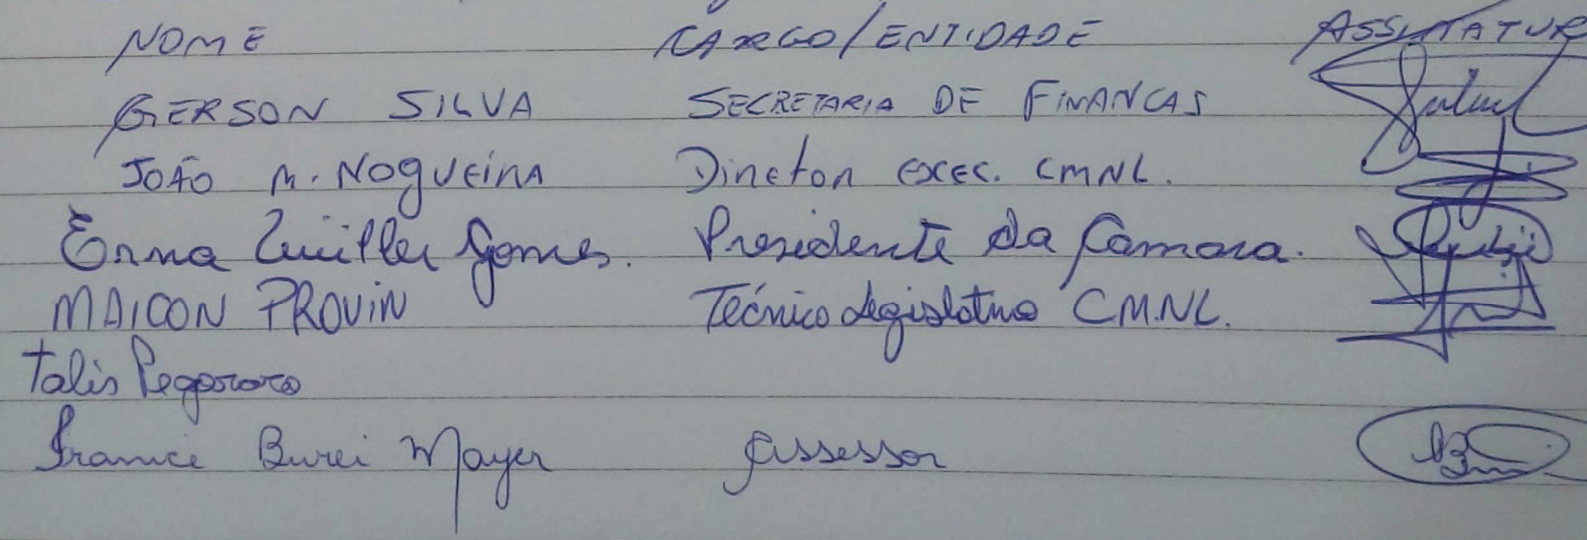 NOME CARGO/ENTIDADE ASSINATUR
GERSON SILVA SECRETARIA DE FINANCAS
JOÃO M. NOGUEIRA Diretor EXEC. CMNL.
Gomes. Presidente da Câmara.
MAICON PROVIN Técnico Legislativo CMNL.
Talis Pegoraro
Burei Mayer Assessor